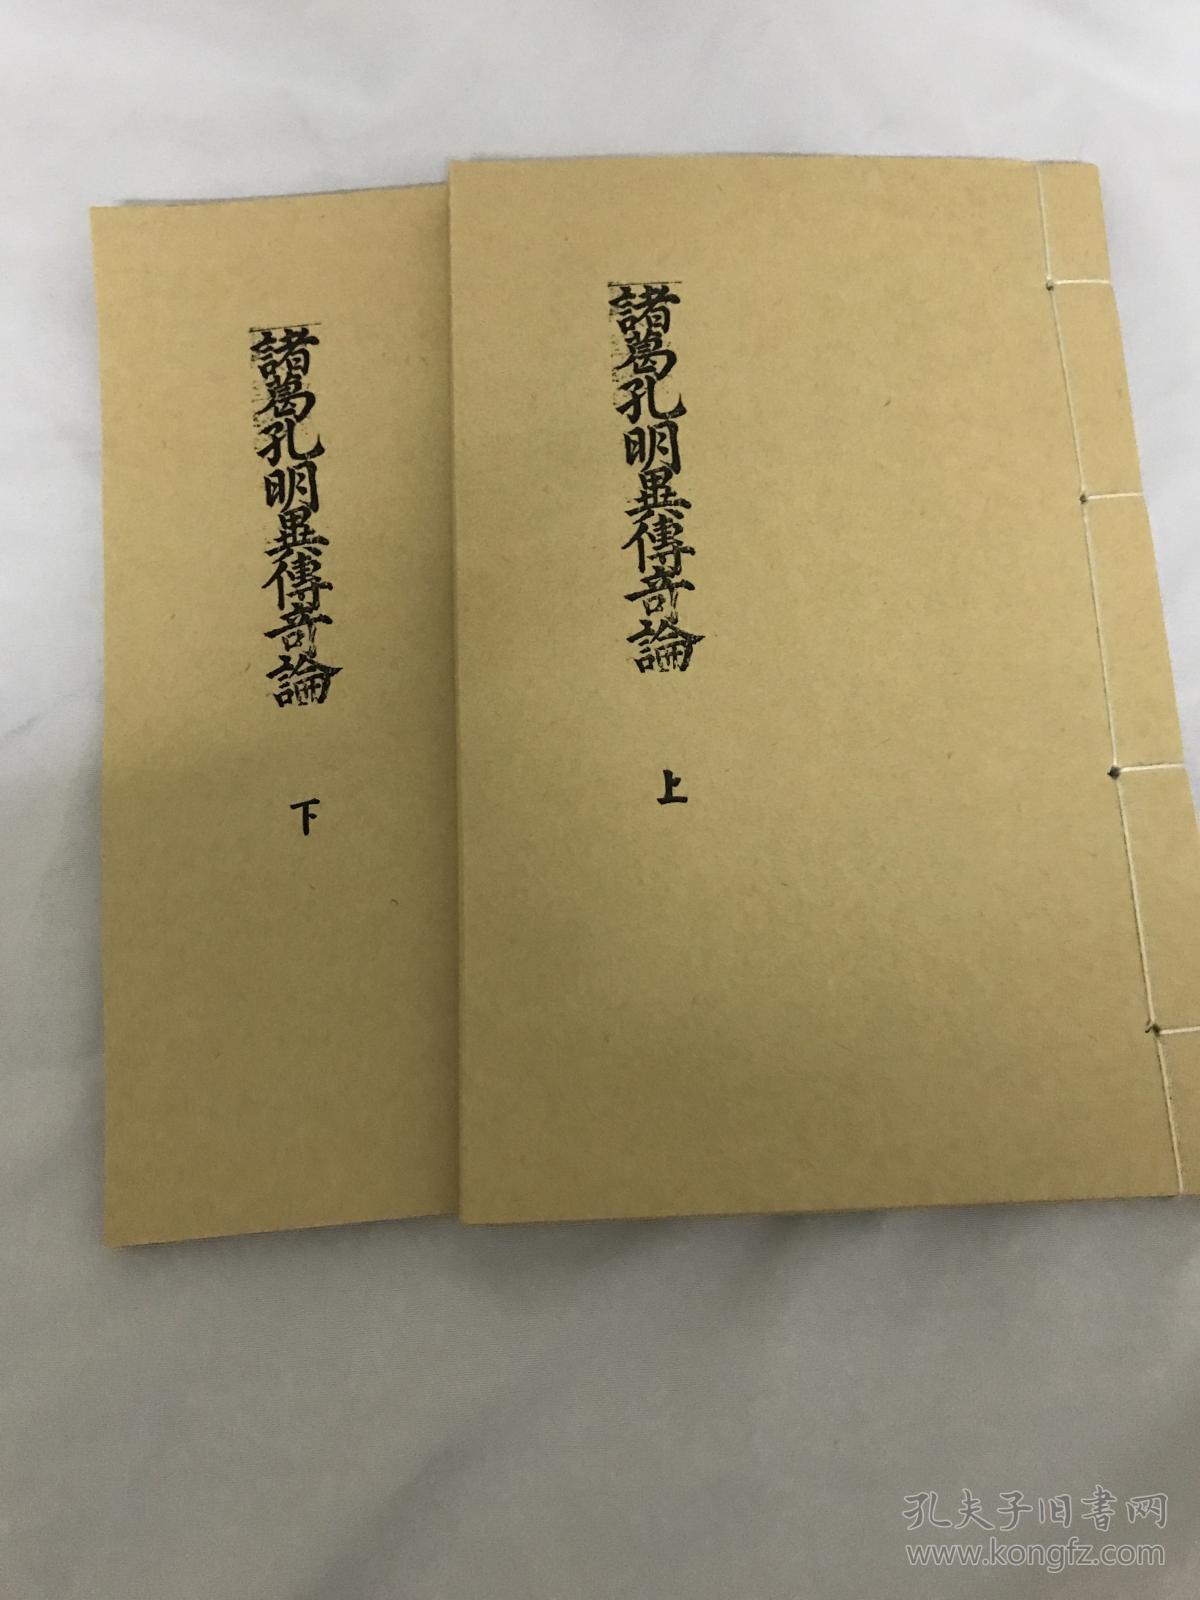 諸葛孔明異傳奇論
上
諸葛孔明異傳奇論
下
孔夫子旧书网
www.kongfz.com